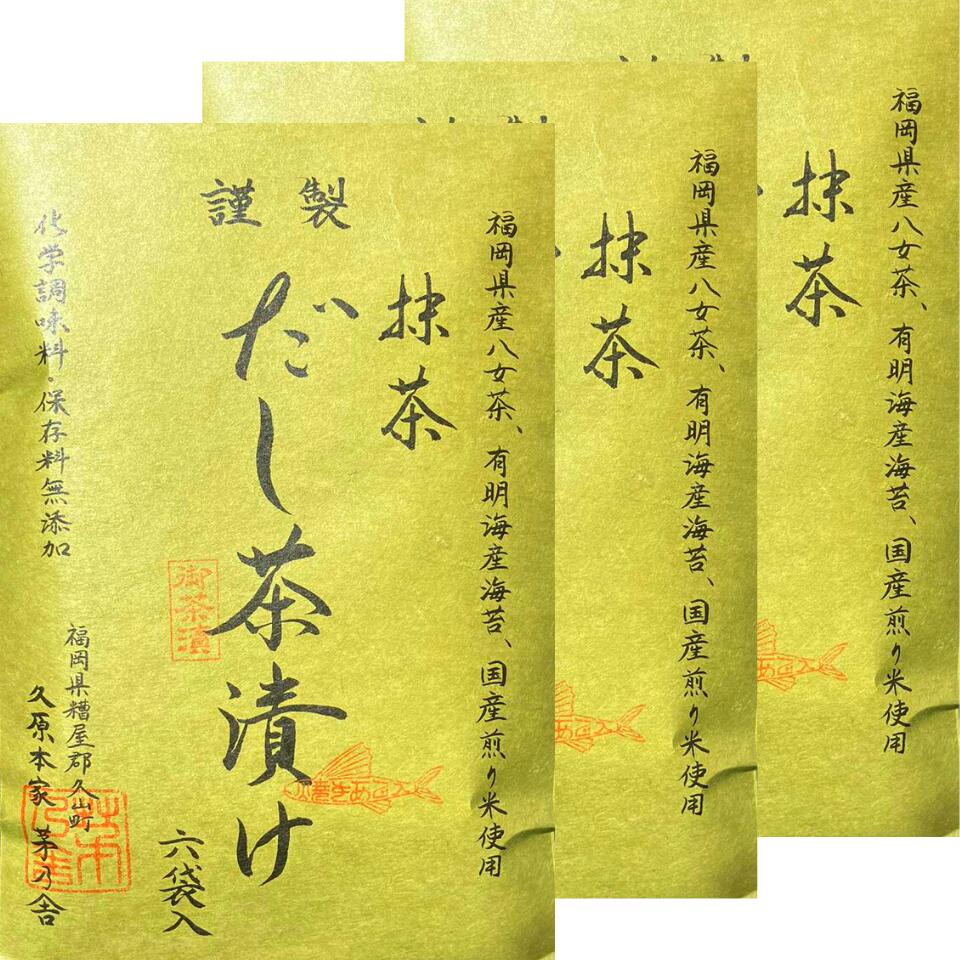 謹製
福岡県産八女茶、有明海産海苔、国産煎り米使用
抹茶
だし茶漬け
御茶漬
六袋入
化学調味料・保存料無添加
福岡県糟屋郡久山町
久原本家 茅乃舎
福岡県産八女茶、有明海産海苔、国産煎り米使用
抹茶
福岡県産八女茶、有明海産海苔、国産煎り米使用
抹茶